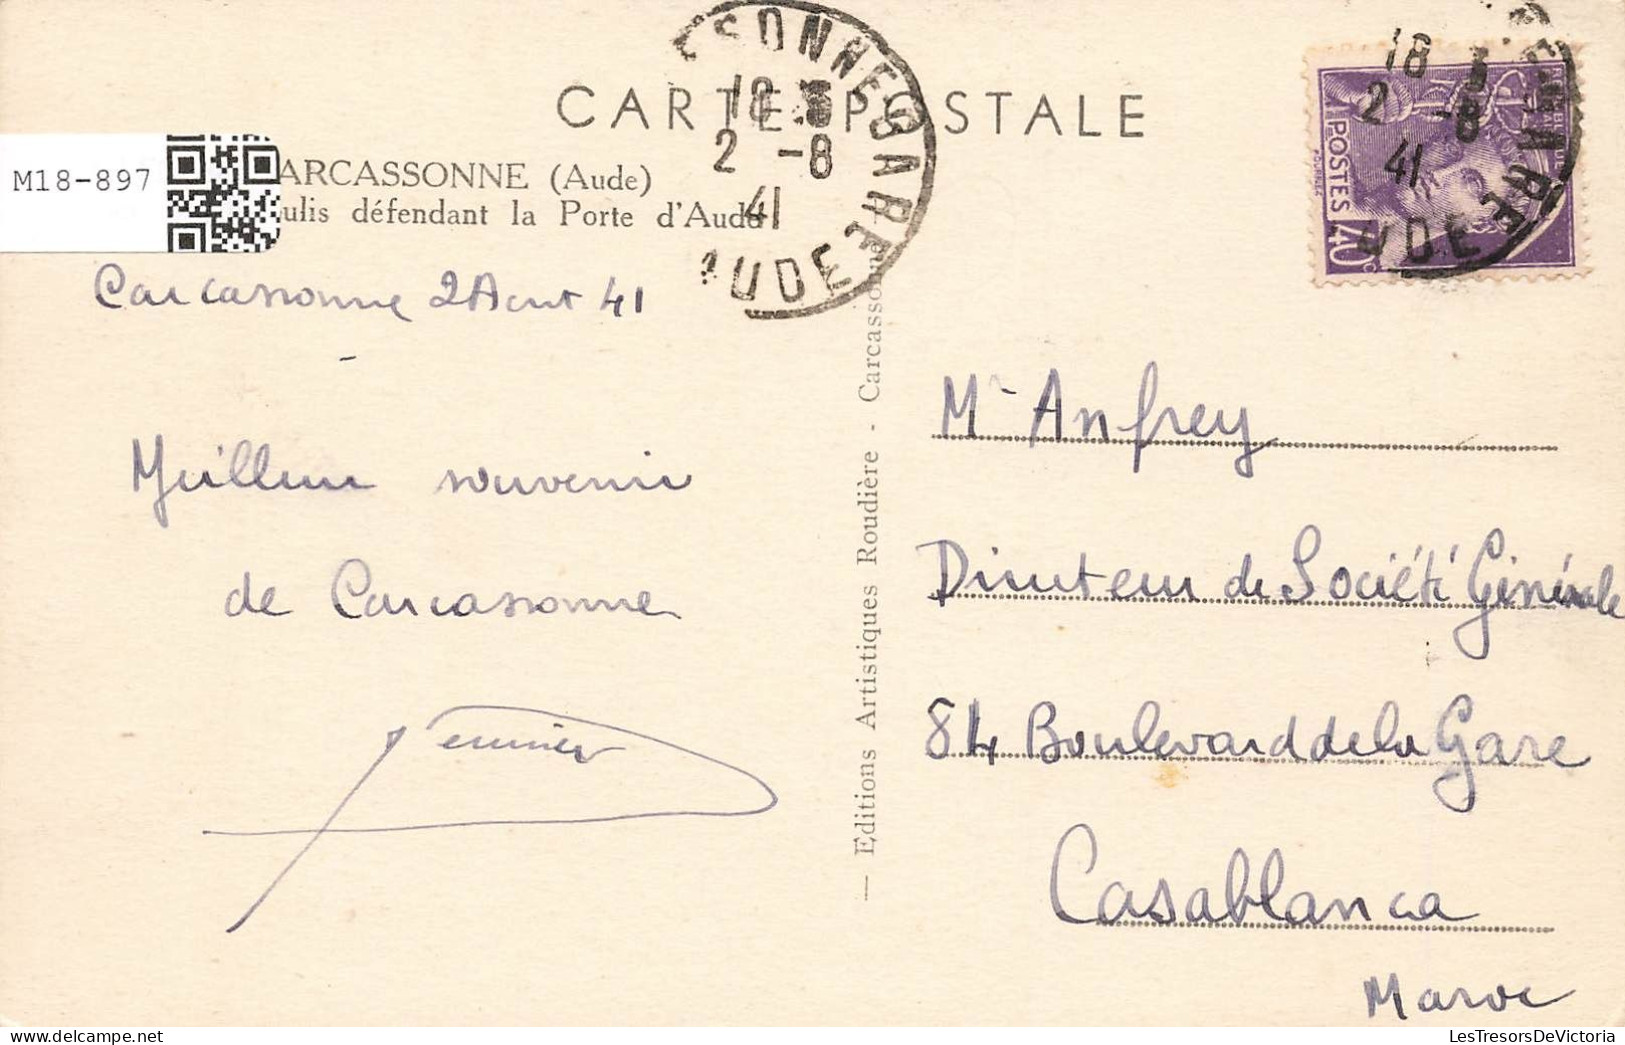 CARTE POSTALE
M18-897
ARCASSONNE (Aude)
ulis défendant la Porte d'Aude
SONNE GARE
18
2 -8
41
AUDE
18
2 -8
41
GARE
AUDE
POSTES
40c
Carcassonne 2 Aout 41
Meilleur souvenir
de Carcassonne
— Editions Artistiques Roudière - Carcassonne
Mr Anfrey
Directeur de Société Générale
84 Boulevard de la Gare
Casablanca
Maroc
LesTresorsDeVictoria